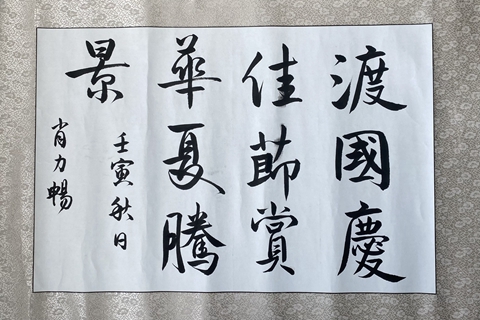 渡國慶
佳節賞
華夏騰
景
壬寅秋日
肖力暢